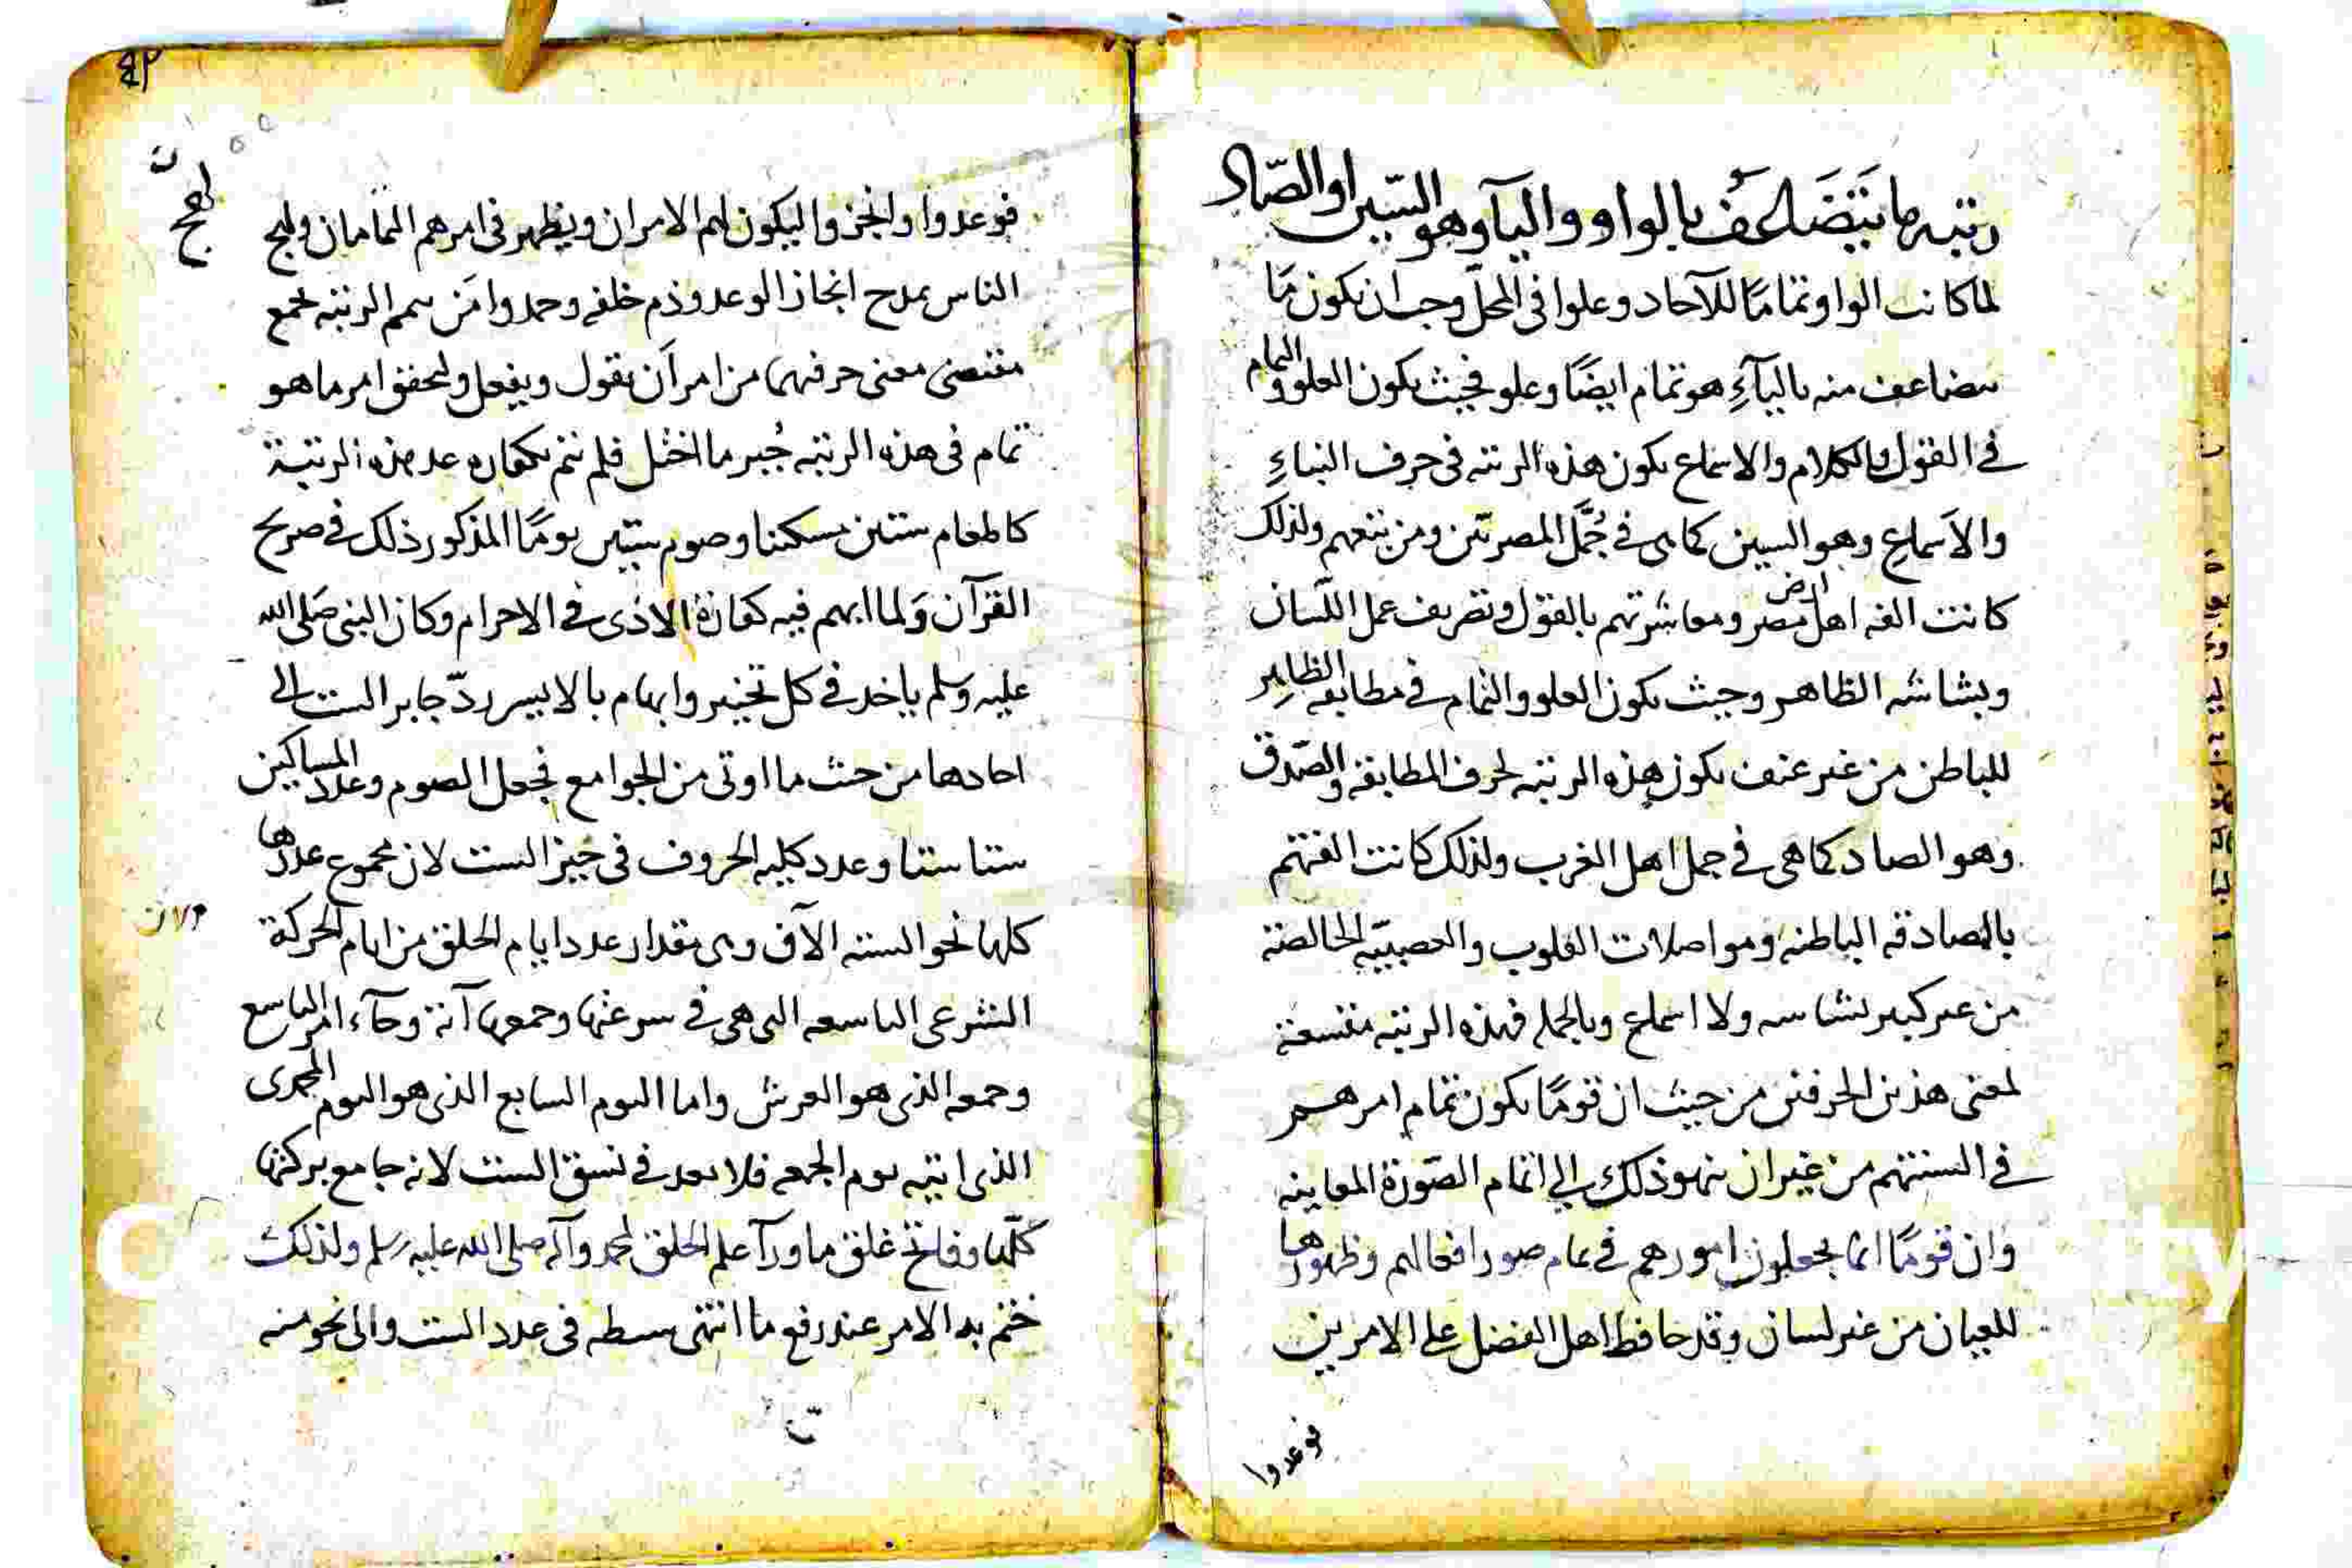 رتبه ما يَتَضَاعَفُ بالواو والياء وهو السّين او الصّاد
لما كانت الواو تمامًا للآحاد وعلوا في المحلّ وجب ان يكون مَا
يتضاعف منه بالياءِ هو تمام ايضًا وعلو فحيث يكون العلو والتمام
في القول والكلام والاسماع يكون هذه الرتبه في حرف النباءِ
والاسماعِ وهو السين كما هى في جُمَّل المصريّين ومن يتبعهم ولذلك
كانت الفه اهل ارض مصر ومعاشرتهم بالقول وتصريف عمل اللّسان
وبشاشه الظاهر وحيث يكون العلو والتمام في مطابقه الظاهِر
للباطن من غير عنف يكون هذه الرتبه لحرف المطابقه والصّدق
وهو الصاد كما هى في جمل اهل الغرب ولذلك كانت الفتهم
بالمصادقه الباطنه ومواصلات القلوب والعصبيّه الخالصة
من غير كبير بشاشه ولا اسماع وبالجمله فهذه الرتبه مقتسمة
لمعنى هذين الحرفين من حيث ان قومًا يكون تمام امرهم
في السنتهم من غير ان ينهو ذلك الى اتمام الصّورة المعاينه
وان قومًا انما يجعلون امورهم في تمام صور افعالهم وظهورها
للعيان من غير لسان وقد حافظ اهل الفضل على الامرين
فوعدوا
فوعدوا وانجزوا ليكون لهم الامران ويظهر في امرهم التمامان ولهج
لهج
الناس بمدح انجاز الوعد وذم خلفه وحمدوا مَن سم الرتبه بجمع
مقتضى معنى حرفيهما من امر اَن يقول ويفعل ولتحقق امر ما هو
تمام في هذه الرتبه جُبر ما اختل فلم يتم بكفاره عد هذه الرتبة
كالمعام ستين مسكينا وصوم ستّين يومًا المذكور ذلك في صريح
القرآن وَلما ابهم فيه كفارة الاذى في الاحرام وكان النبى صَلى الله
عليه وسلم ياخذ في كل تخيير وابهام بالايسر ردّ جابر الست الى
احادها من حيث ما اوتى من الجوامع فجعل الصوم وعدد المساكين
ستا ستا وعدد كليه الحروف في حيز الست لان مجموع عددها
كلها نحو السته الآف وهى مقدار عدد ايام الخلق من ايام الحركة
الشرعى التاسعه التى هى في سرعتها وجمعها آية وجآء امر التاسع
وجمعه الذى هو العرش واما اليوم السابع الذى هو اليوم المحمدى
الذى ايته يوم الجمعه فلا يعد في نسق الست لانه جامع بركتها
كلّها وفاتح غلق ما ورآء علم الخلق لمحمد وآله صلى الله عليه وسلم ولذلك
ختم به الامر عند رفع ما انتهى بسطه في عدد الست والى نحو منه